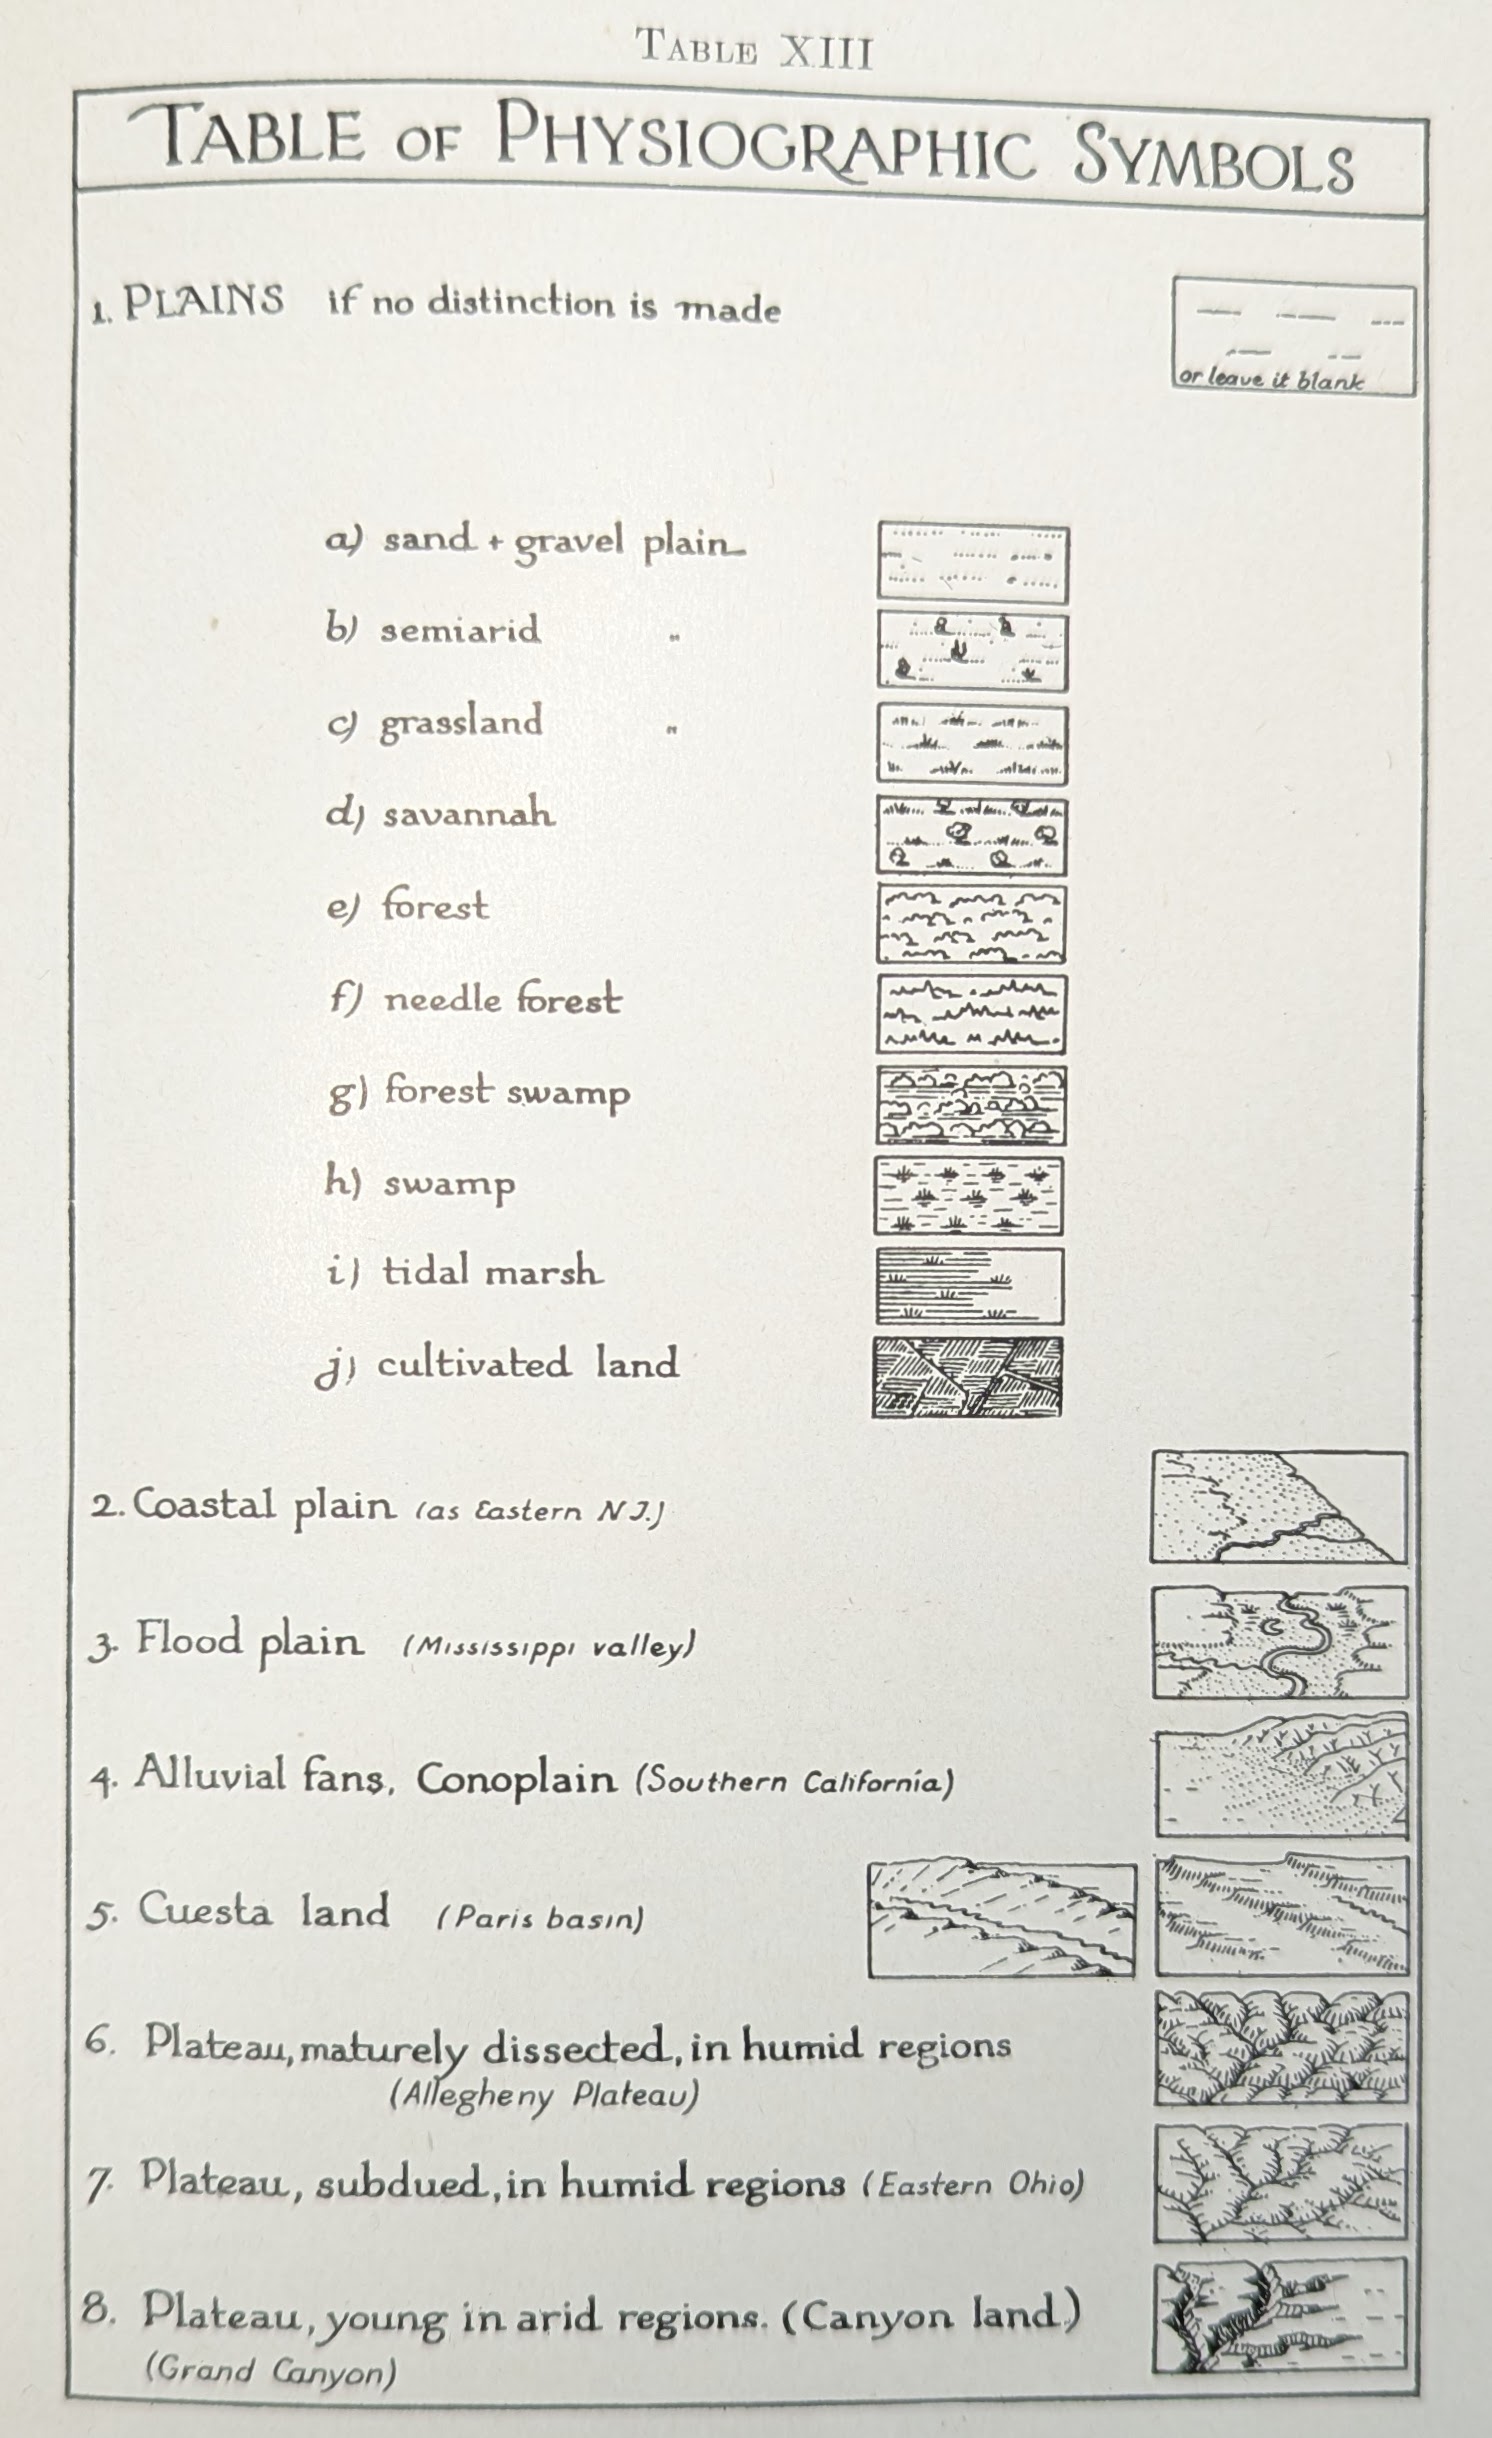 TABLE XIII
TABLE OF PHYSIOGRAPHIC SYMBOLS
1. PLAINS if no distinction is made
or leave it blank
a) sand + gravel plain
b) semiarid "
c) grassland "
d) savannah
e) forest
f) needle forest
g) forest swamp
h) swamp
i) tidal marsh
j) cultivated land
2. Coastal plain (as Eastern N J.)
3. Flood plain (Mississippi valley)
4. Alluvial fans, Conoplain (Southern California)
5. Cuesta land (Paris basin)
6. Plateau, maturely dissected, in humid regions
(Allegheny Plateau)
7. Plateau, subdued, in humid regions (Eastern Ohio)
8. Plateau, young in arid regions. (Canyon land.)
(Grand Canyon)